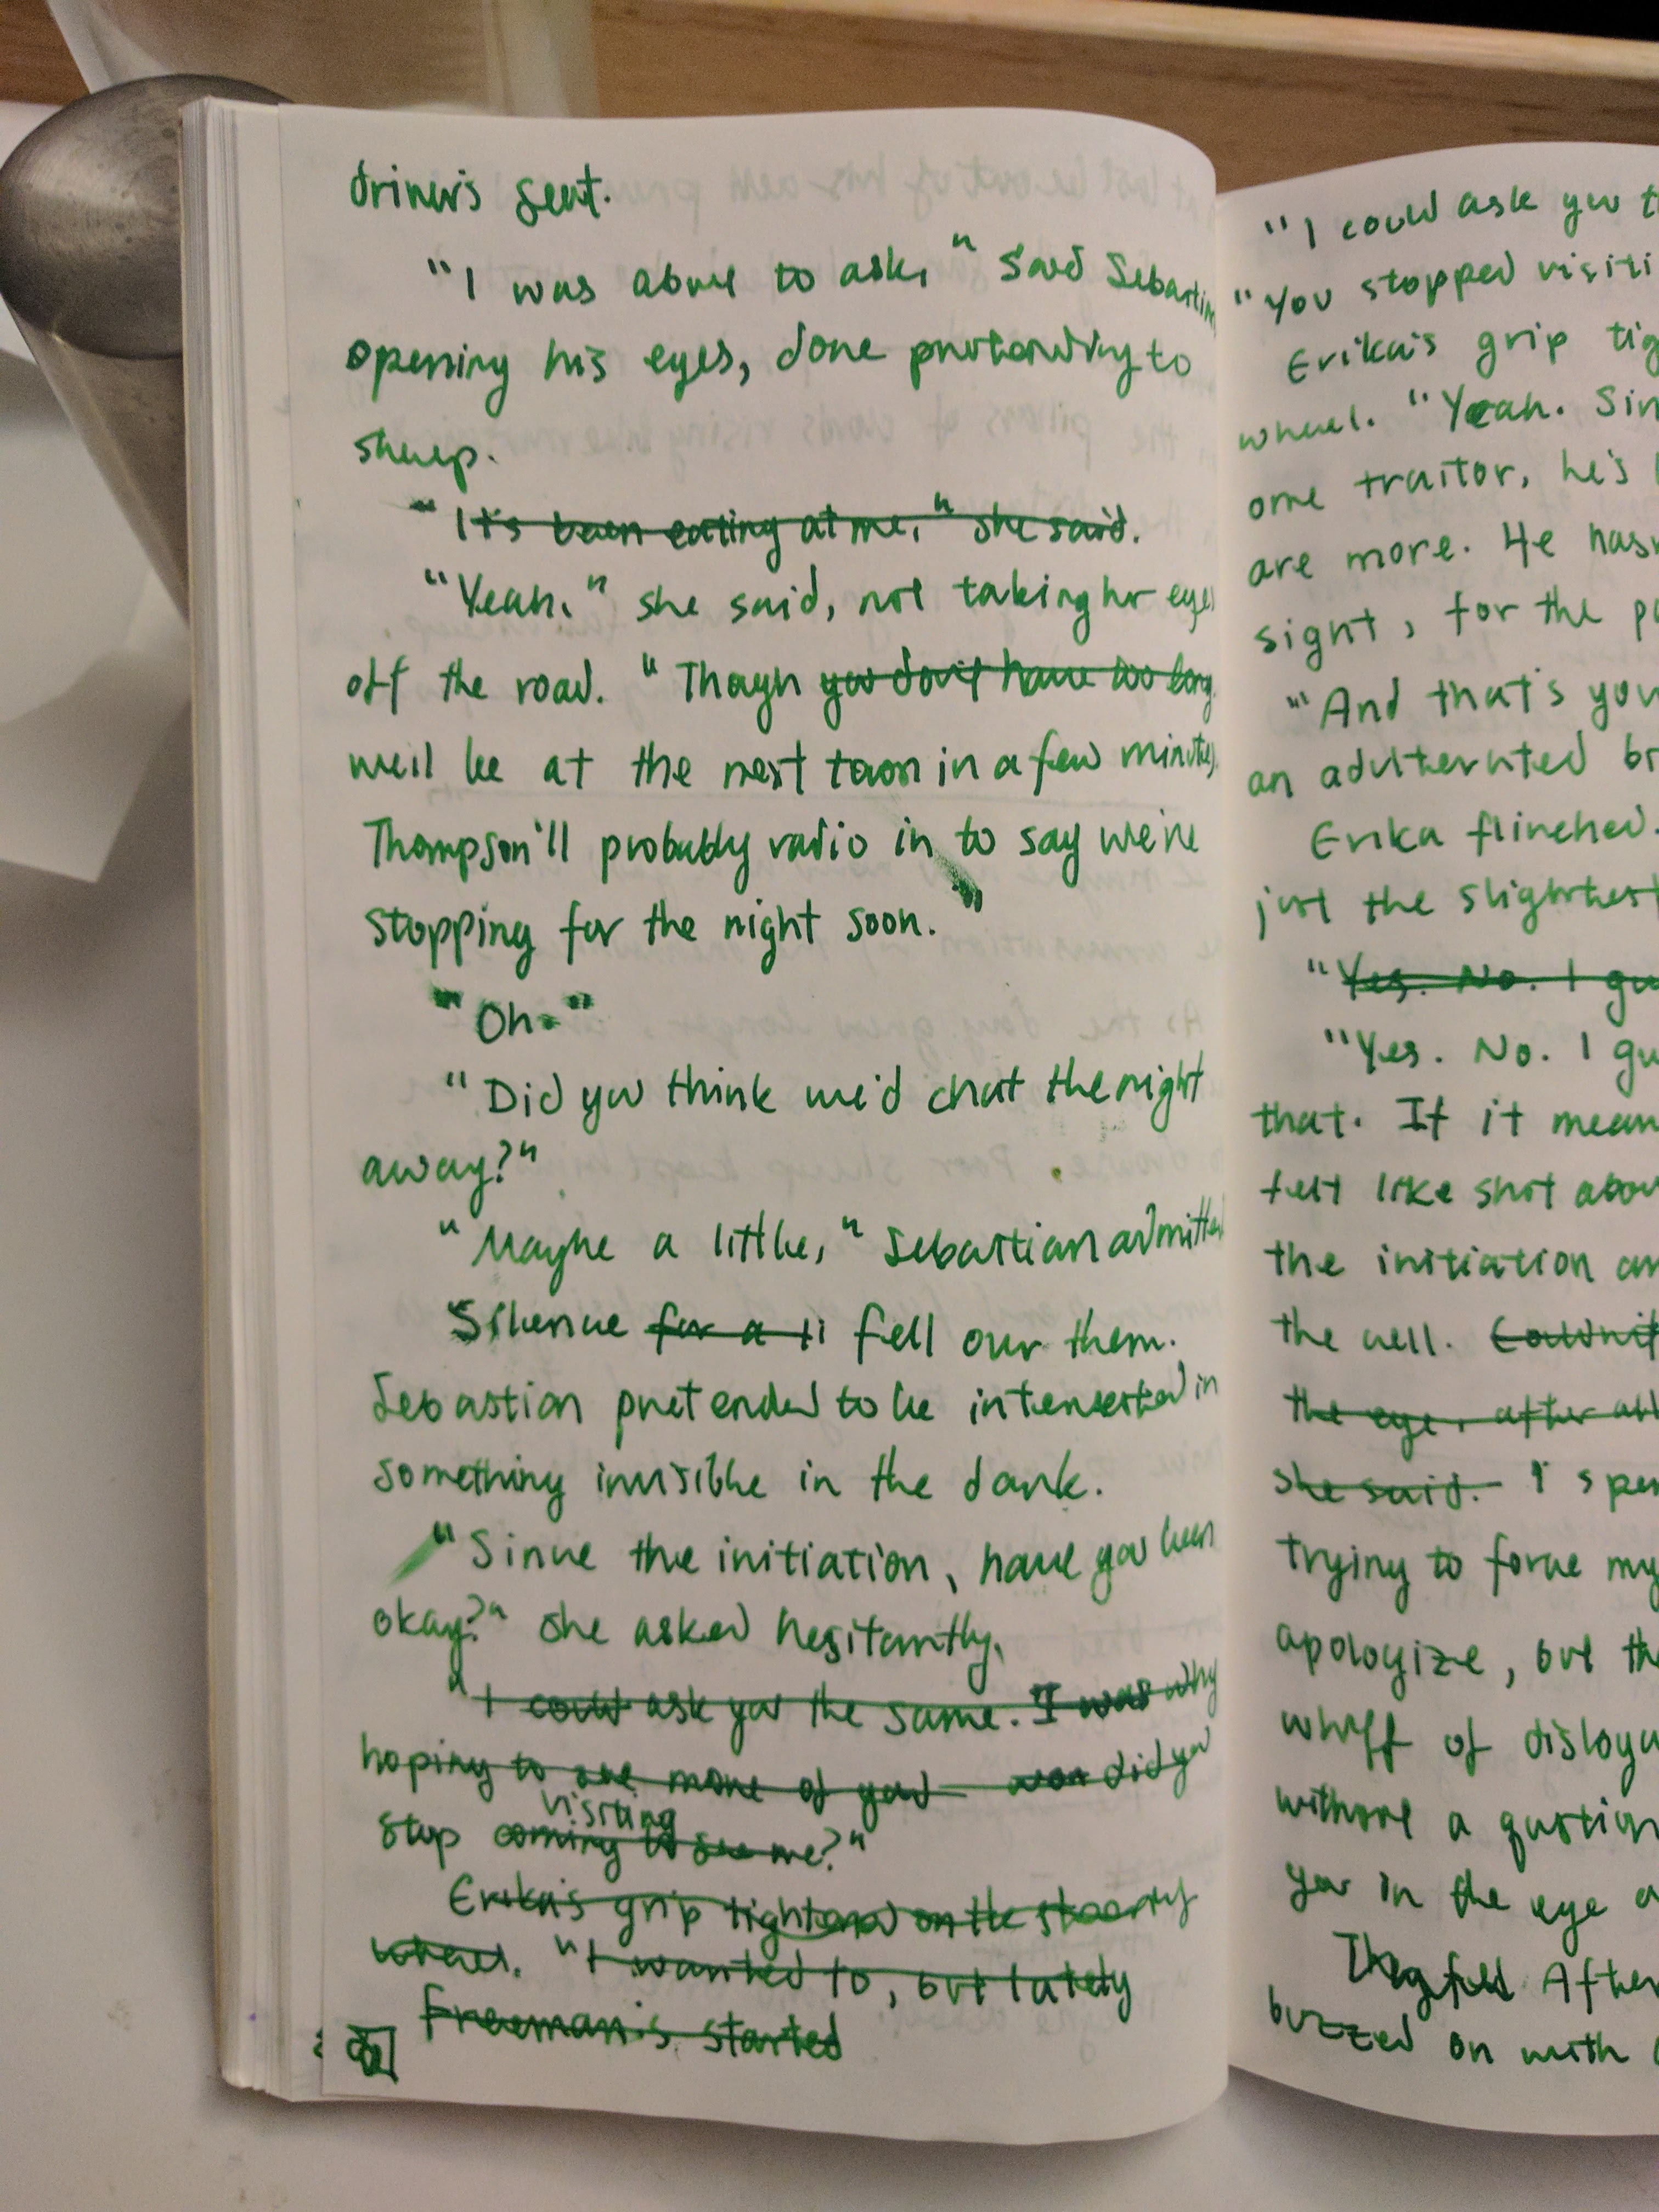 driver's seat.
"I was about to ask," said Sebastian,
opening his eyes, done pretending to
sleep.
"It's been eating at me," she said.
"Yeah," she said, not taking her eyes
off the road. "Though you don't have too long.
we'll be at the next town in a few minutes.
Thompson'll probably radio in to say we're
stopping for the night soon."
"Oh."
"Did you think we'd chat the night
away?"
"Maybe a little," Sebastian admitted
Silence for a ti fell over them.
Sebastian pretended to be interested in
something invisible in the dark.
"Since the initiation, have you been
okay?" she asked hesitantly.
"I could ask you the same. I was why
hoping to see more of you did you
visiting
stop coming to see me?"
Erika's grip tightened on the steering
wheel. "I wanted to, but lately
Freeman's started
"I could ask you t
"You stopped visiti
Erika's grip tig
wheel. "Yeah. Sin
one traitor, he's
are more. He has
sight, for the p
"And that's you
an adulterated br
Erika flinched.
just the slightest
"Yes. No. I gu
"Yes. No. I gu
that. If it mean
felt like shit abou
the initiation an
the cell. Couldn't
the eye, after all
she said. I spen
trying to force my
apologize, but th
whiff of disloya
without a question
you in the eye a
They fell After
buzzed on with